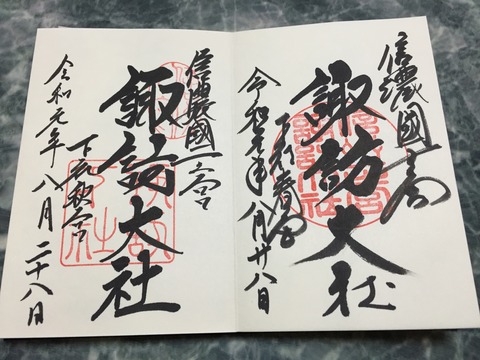 信濃國一宮
諏訪大社
下社春宮
令和元年八月廿八日
信濃國一之宮
諏訪大社
下社秋宮
令和元年八月二十八日